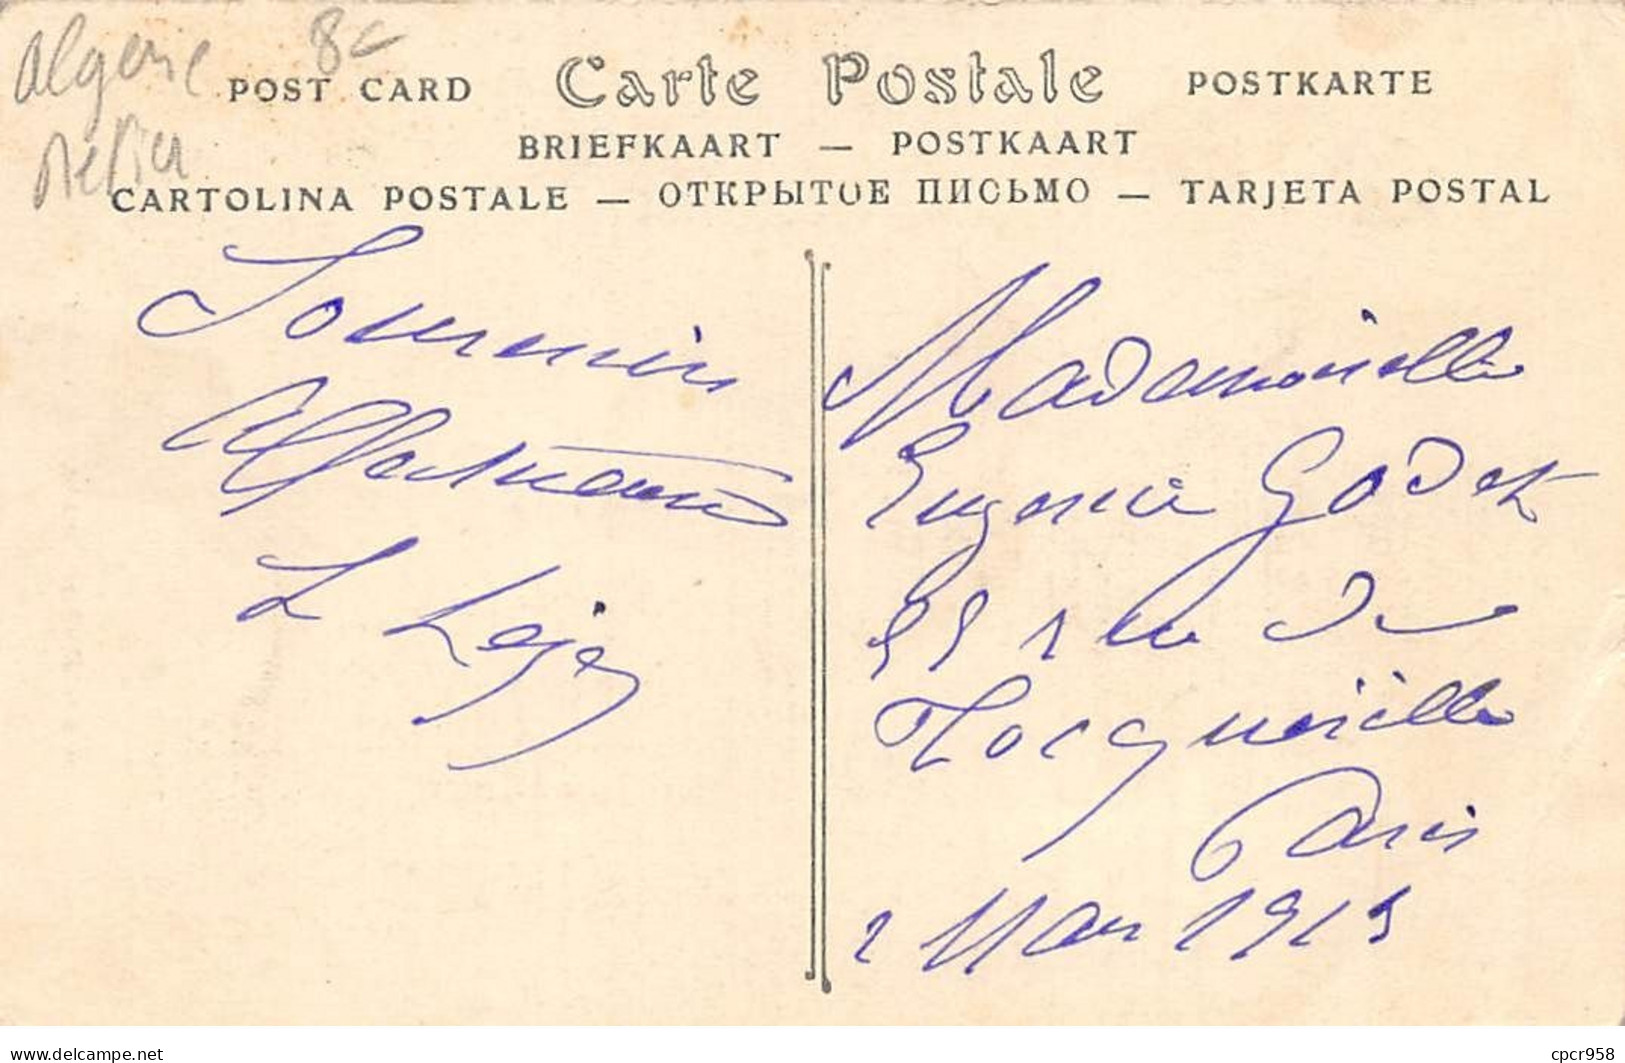 Algerie 8c
POST CARD Carte Postale POSTKARTE
BRIEFKAART — POSTKAART
CARTOLINA POSTALE — ОТКРЫТОЕ ПИСЬМО — TARJETA POSTAL
Souvenirs
Affectueux
L
Mademoiselle
Eugenie Godet
rue de
Tocqueville
Paris
2 Mars 1915
www.delcampe.net
cpcr958